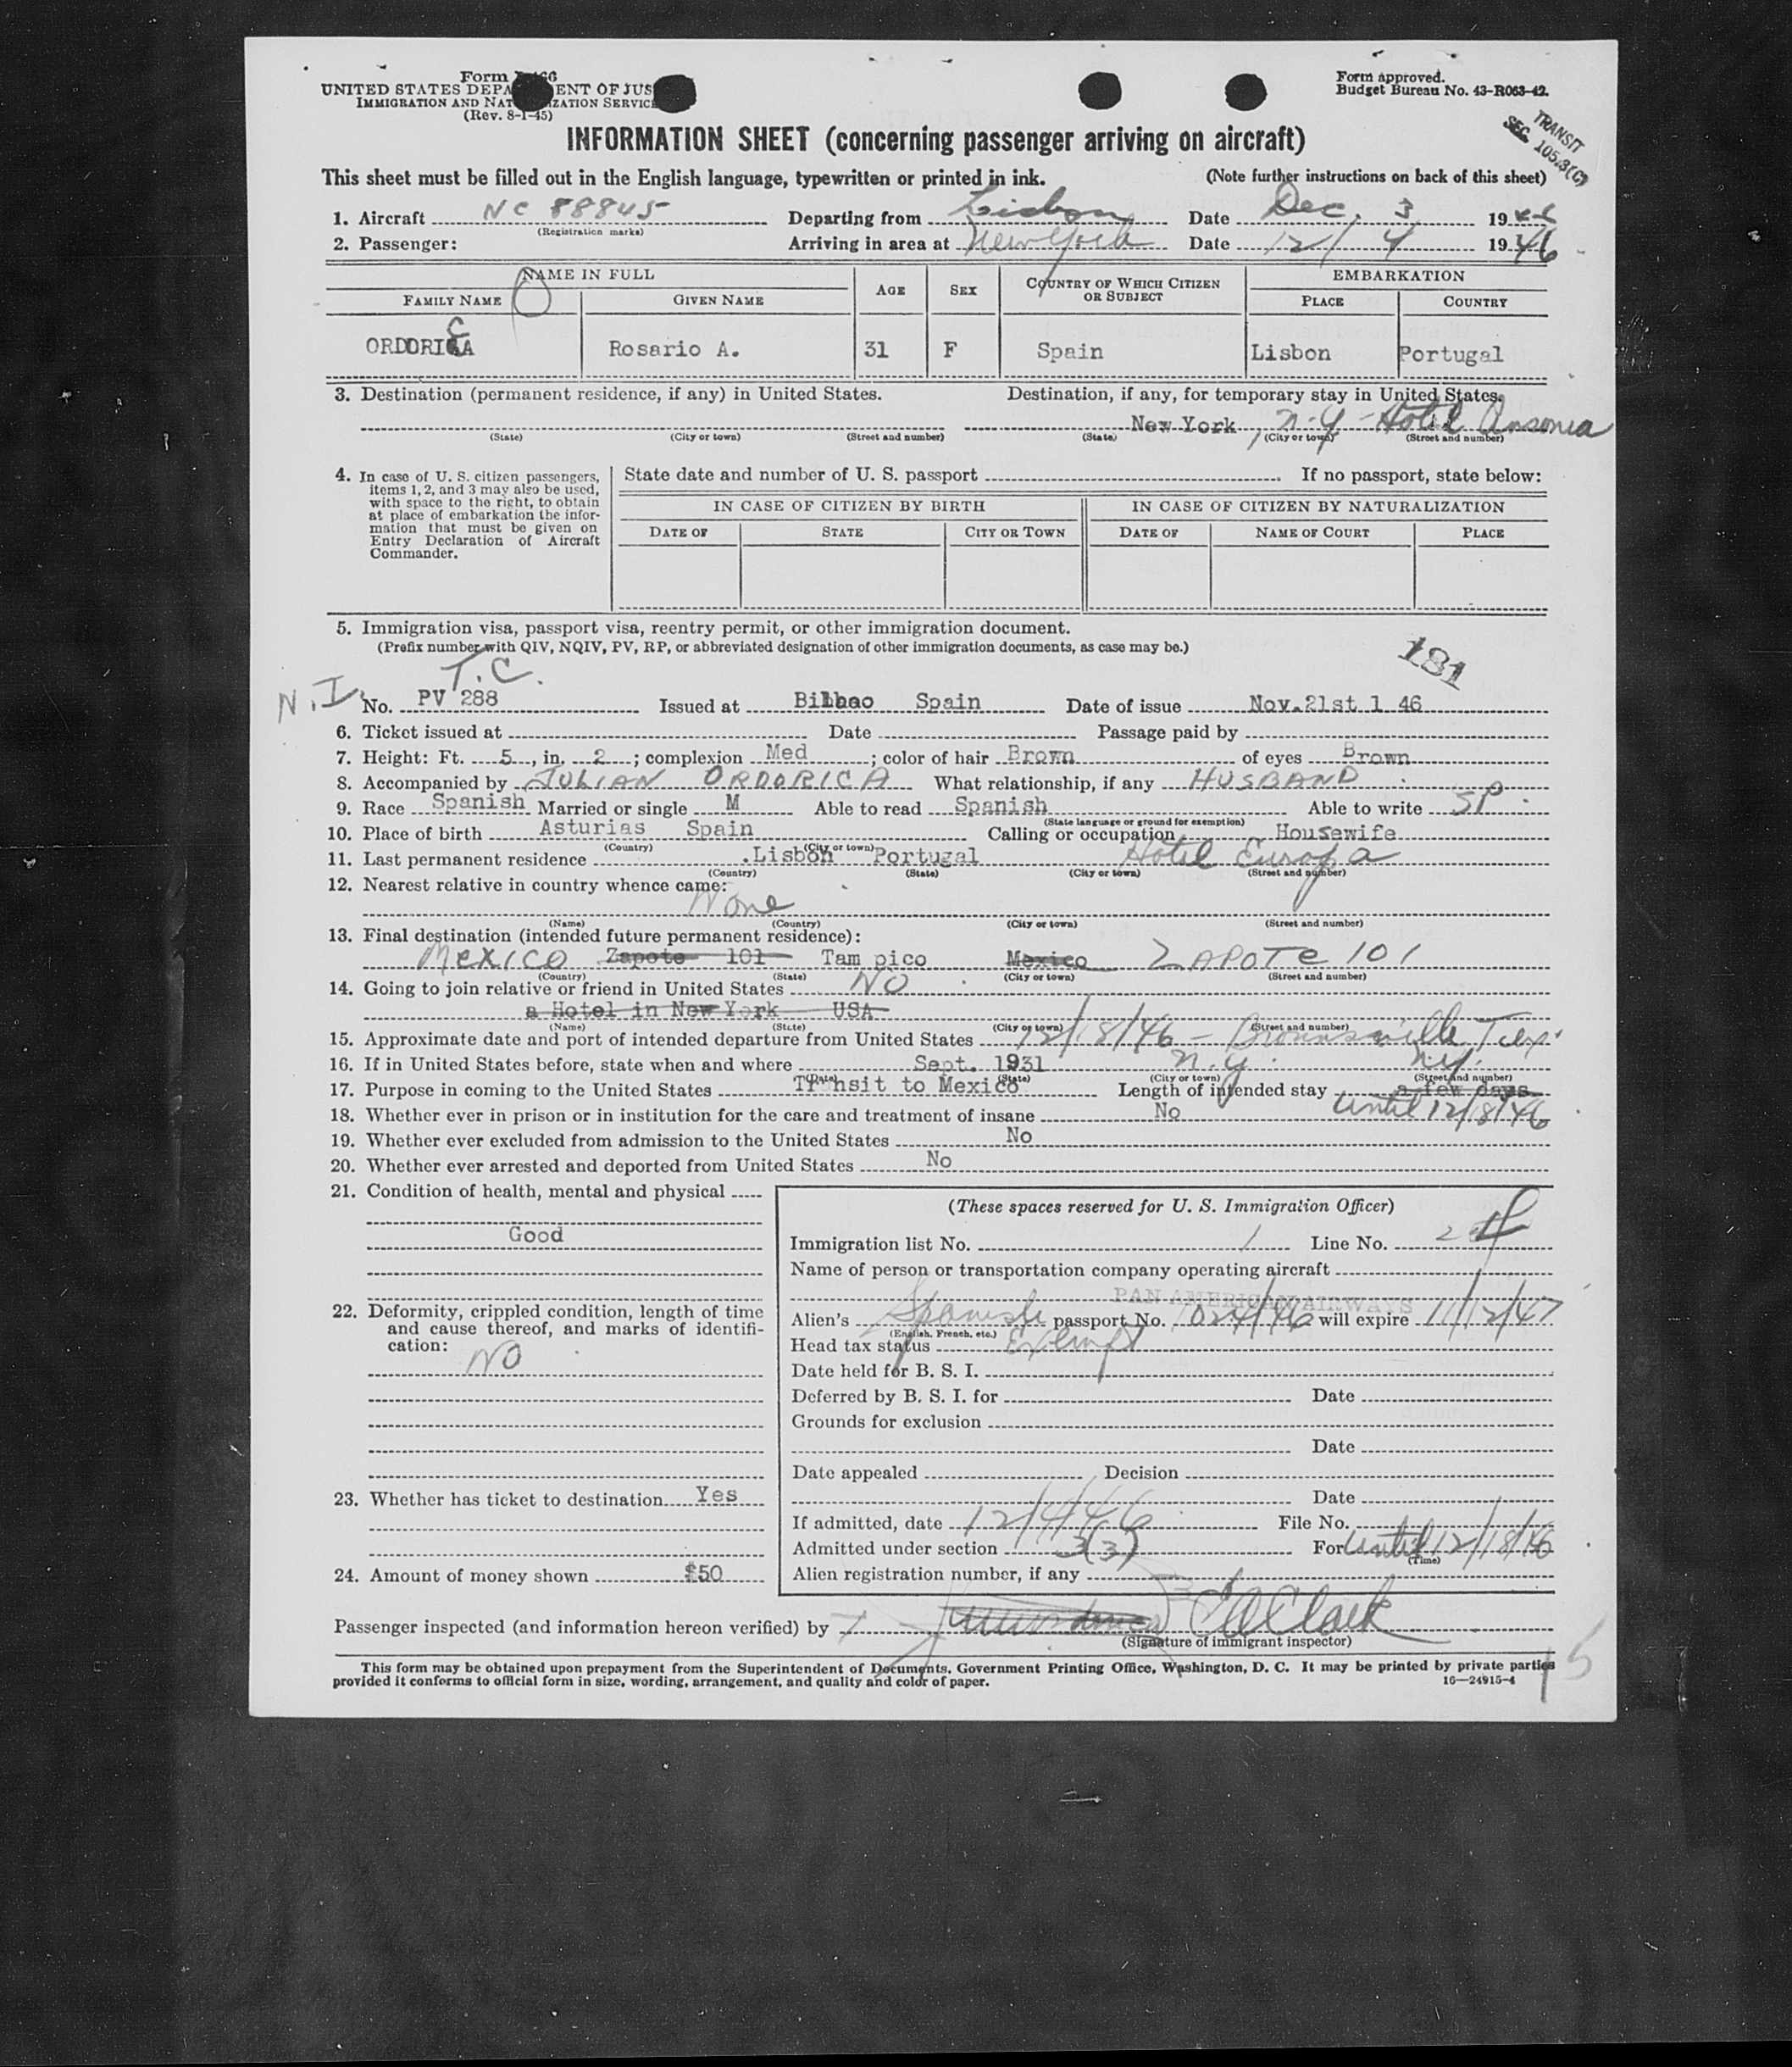 Form I-466
UNITED STATES DEPARTMENT OF JUSTICE
IMMIGRATION AND NATURALIZATION SERVICE
(Rev. 8-1-45)
Form approved.
Budget Bureau No. 43-R063-42.
TRANSIT
SEC. 105.3(C)
INFORMATION SHEET (concerning passenger arriving on aircraft)
This sheet must be filled out in the English language, typewritten or printed in ink. (Note further instructions on back of this sheet)
1. Aircraft NC 88845 Departing from Lisbon Date Dec. 3 1946
(Registration marks)
2. Passenger: Arriving in area at New York Date 12/4 1946
NAME IN FULL AGE SEX COUNTRY OF WHICH CITIZEN OR SUBJECT EMBARKATION
FAMILY NAME GIVEN NAME PLACE COUNTRY
C
ORDORICA Rosario A. 31 F Spain Lisbon Portugal
3. Destination (permanent residence, if any) in United States. Destination, if any, for temporary stay in United States.
New York, N.Y - Hotel Ansonia
(State) (City or town) (Street and number) (State) (City or town) (Street and number)
4. In case of U. S. citizen passengers, items 1, 2, and 3 may also be used, with space to the right, to obtain at place of embarkation the information that must be given on Entry Declaration of Aircraft Commander.
State date and number of U. S. passport If no passport, state below:
IN CASE OF CITIZEN BY BIRTH IN CASE OF CITIZEN BY NATURALIZATION
DATE OF STATE CITY OR TOWN DATE OF NAME OF COURT PLACE
5. Immigration visa, passport visa, reentry permit, or other immigration document.
(Prefix number with QIV, NQIV, PV, RP, or abbreviated designation of other immigration documents, as case may be.)
181
T.C.
N.I. No. PV 288 Issued at Bilbao Spain Date of issue Nov.21st 1 46
6. Ticket issued at Date Passage paid by
7. Height: Ft. 5, in. 2; complexion Med; color of hair Brown of eyes Brown
8. Accompanied by JULIAN ORDORICA What relationship, if any HUSBAND
9. Race Spanish Married or single M Able to read Spanish Able to write SP
(State language or ground for exemption)
10. Place of birth Asturias Spain Calling or occupation Housewife
(Country) (City or town)
11. Last permanent residence Lisbon Portugal Hotel Europa
(Country) (State) (City or town) (Street and number)
12. Nearest relative in country whence came:
None
(Name) (Country) (City or town) (Street and number)
13. Final destination (intended future permanent residence):
Mexico Zapote 101 Tam pico Mexico ZAPOTe 101
(Country) (State) (City or town) (Street and number)
14. Going to join relative or friend in United States NO
a Hotel in New York USA
(Name) (State) (City or town) (Street and number)
15. Approximate date and port of intended departure from United States 12/18/46 - Brownsville Tex
16. If in United States before, state when and where Sept. 1931 N.Y. N.Y.
(Date) (State) (City or town) (Street and number)
17. Purpose in coming to the United States Transit to Mexico Length of intended stay a few days
until 12/18/46
18. Whether ever in prison or in institution for the care and treatment of insane No
19. Whether ever excluded from admission to the United States No
20. Whether ever arrested and deported from United States No
21. Condition of health, mental and physical
Good
22. Deformity, crippled condition, length of time and cause thereof, and marks of identification:
NO
23. Whether has ticket to destination Yes
24. Amount of money shown $50
(These spaces reserved for U. S. Immigration Officer)
Immigration list No. 1 Line No. 2
Name of person or transportation company operating aircraft
PAN AMERICAN AIRWAYS
Alien's Spanish passport No. 1024/46 will expire 11/12/47
(English, French, etc.)
Head tax status Exempt
Date held for B. S. I.
Deferred by B. S. I. for Date
Grounds for exclusion
Date
Date appealed Decision
Date
If admitted, date 12/4/46 File No.
Admitted under section 3(3) For Until 12/18/46
(Time)
Alien registration number, if any
Passenger inspected (and information hereon verified) by Clark
(Signature of immigrant inspector)
This form may be obtained upon prepayment from the Superintendent of Documents, Government Printing Office, Washington, D. C. It may be printed by private parties
provided it conforms to official form in size, wording, arrangement, and quality and color of paper. 16—24915-4
15